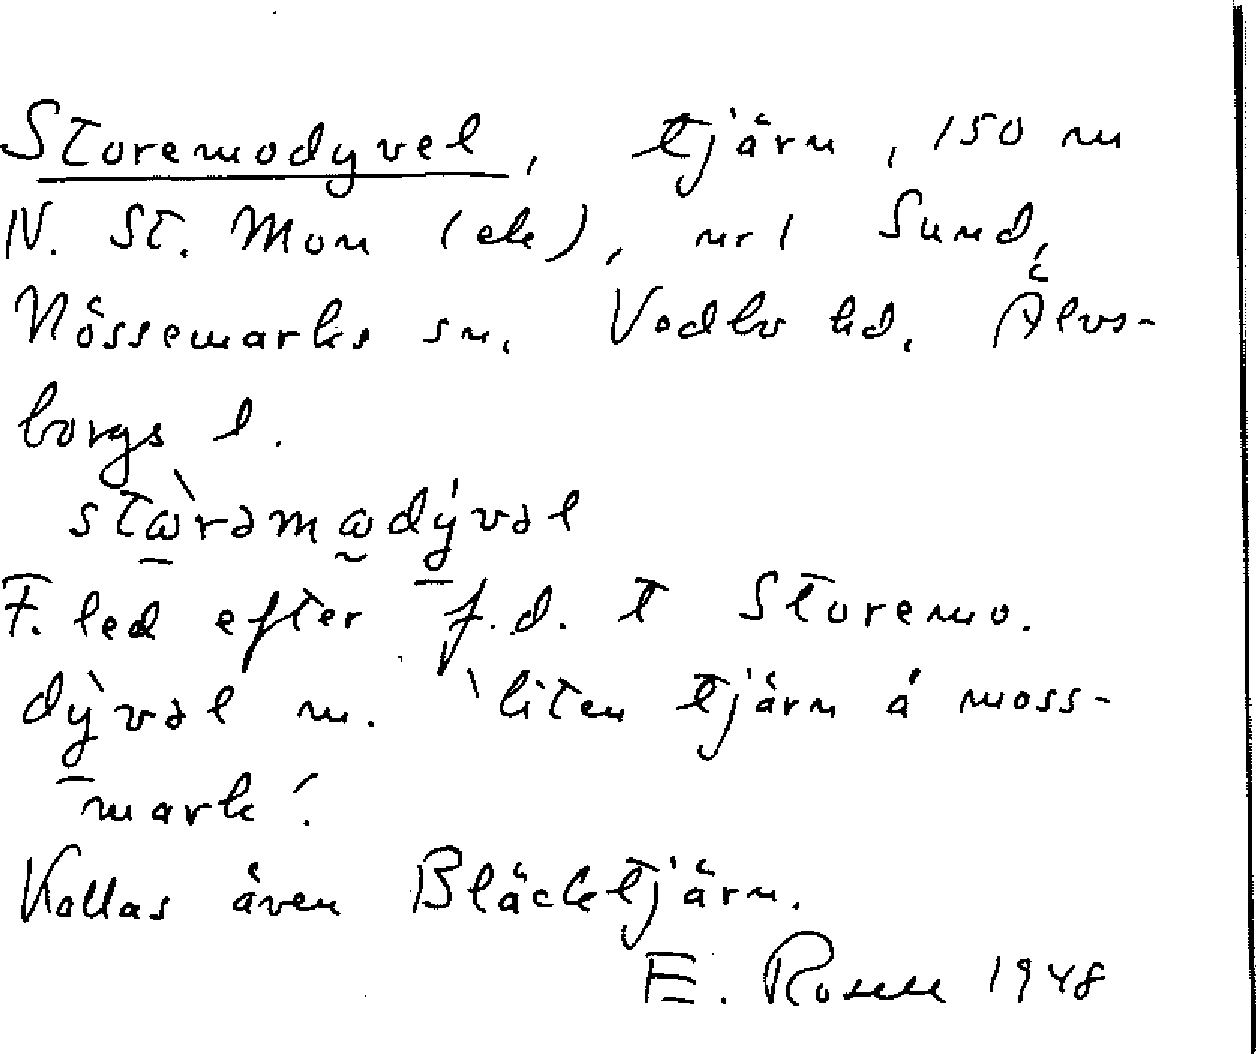 Storemodyvel, tjärn, 150 m
N. St. Mon (ek), nr 1 Sund,
Nössemarks sn. Vedbo hd. Älvs-
borgs l.
stɷ̀rəmɷdy̍vəl
F. led efter f.d. t Storemo.
dy̍̀vəl m. 'liten tjärn å moss-
mark'.
Kallas även Bläcktjärn.
E. Rosell 1948